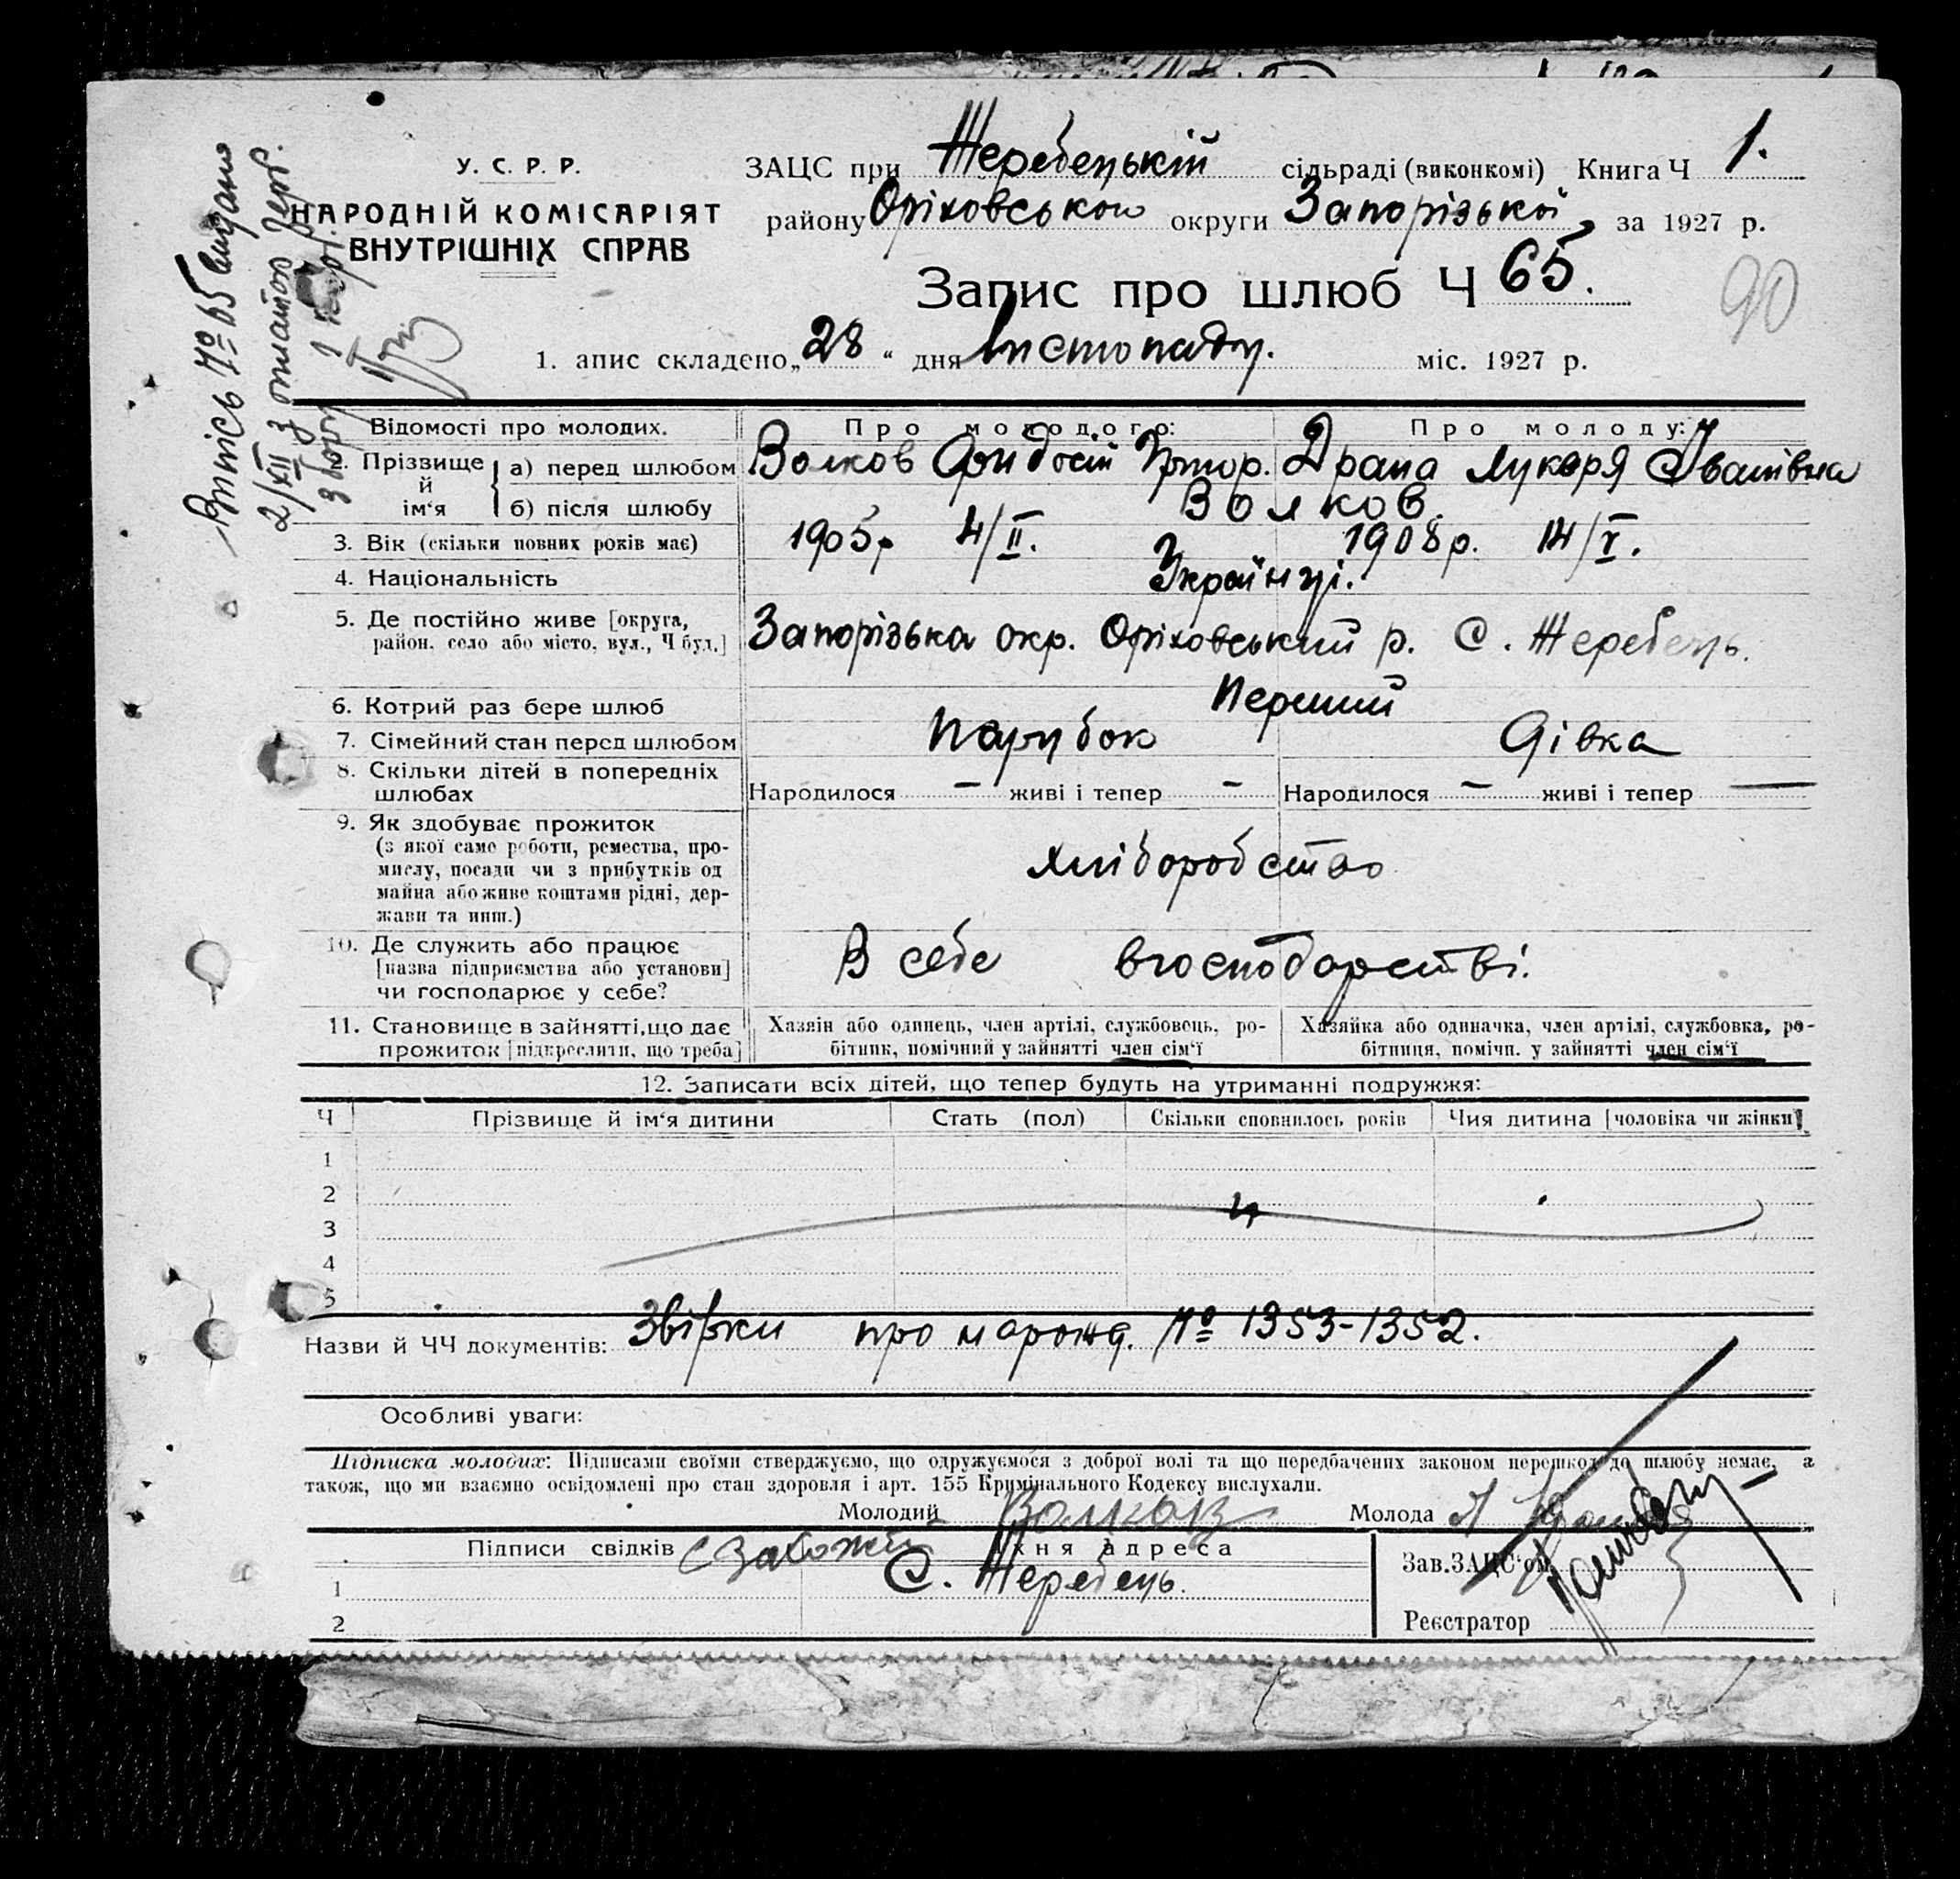 Випись № 65 видана
2/XII з оплатою герб.
збору 1 кар.
У. С. Р. Р.
НАРОДНІЙ КОМІСАРІЯТ
ВНУТРІШНІХ СПРАВ
ЗАЦС при Жеребецькій сільраді (виконкомі) Книга Ч 1.
району Оріховського округи Запорізької за 1927 р.
Запис про шлюб Ч 65.
90
1. апис складено „28“ дня листопаду. міс. 1927 р.
Відомості про молодих. Про молодого: Про молоду:
2. Прізвище й ім‘я а) перед шлюбом Волков Григор. Драпа Лукеря Іванівна
б) після шлюбу Волков.
3. Вік (скільки повних років має) 1905р 4/II. 1908р. 14/V.
4. Національність Українці.
5. Де постійно живе [округа, Запорізька окр. Оріховський р. С. Жеребець.
район, село або місто, вул., Ч буд.]
6. Котрий раз бере шлюб Перший
7. Сімейний стан перед шлюбом парубок дівка
8. Скільки дітей в попередніх
шлюбах Народилося — живі і тепер — Народилося — живі і тепер —
9. Як здобуває прожиток
(з якої саме роботи, ремества, про-
мислу, посади чи з прибутків од хліборобство
майна або живе коштами рідні, дер-
жави та инш.)
10. Де служить або працює В себе вгосподарстві.
[назва підприємства або установи]
чи господарює у себе?
11. Становище в зайнятті, що дає Хазяін або одинець, член артілі, службовець, ро- Хазяйка або одиначка, член артілі, службовка, ро-
прожиток [підкреслити, що треба] бітник, помічний у зайнятті член сім‘ї бітниця, помічн. у зайнятті член сім‘ї
12. Записати всіх дітей, що тепер будуть на утриманні подружжя:
Ч Прізвище й ім‘я дитини Стать (пол) Скільки сповнилось років Чия дитина [чоловіка чи жінки]
1
2
3
4
5
Назви й ЧЧ документів: Звірки про марожд. № 1353-1352.
Особливі уваги:
Підписка молодих: Підписами своїми стверджуємо, що одружуємося з доброї волі та що передбачених законом перешкод до шлюбу немає, а
також, що ми взаємно освідомлені про стан здоровля і арт. 155 Кримінального Кодексу вислухали.
Молодий Волков Молода
Підписи свідків Їхня адреса Зав. ЗАЦС‘ом
1 С. Жеребець.
2 Реєстратор